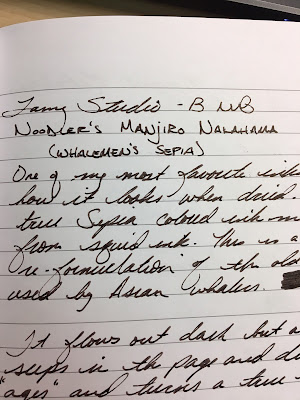 Lamy Studio - B Nib
NOODLER'S MANJIRO NAKAHAMA
(WHALEMEN'S SEPIA)
One of my most favorite inks
how it looks when dried.
true Sepia colored ink
from squid ink. This is a
re-formulation of the old
used by Asian whalers.
It flows out dark but a
seeps in the page and d
"ages" and turns a true